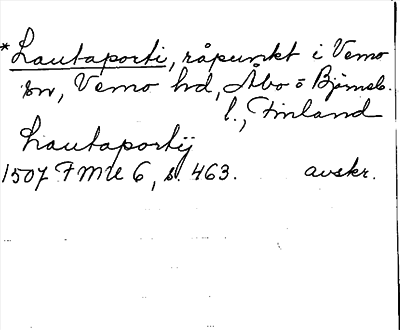 *Lautaporti, råpunkt i Vemo
sn, Vemo hd, Åbo o Björneb.
l., Finland
Lautaportij
1507 FMU 6, s. 463. avskr.